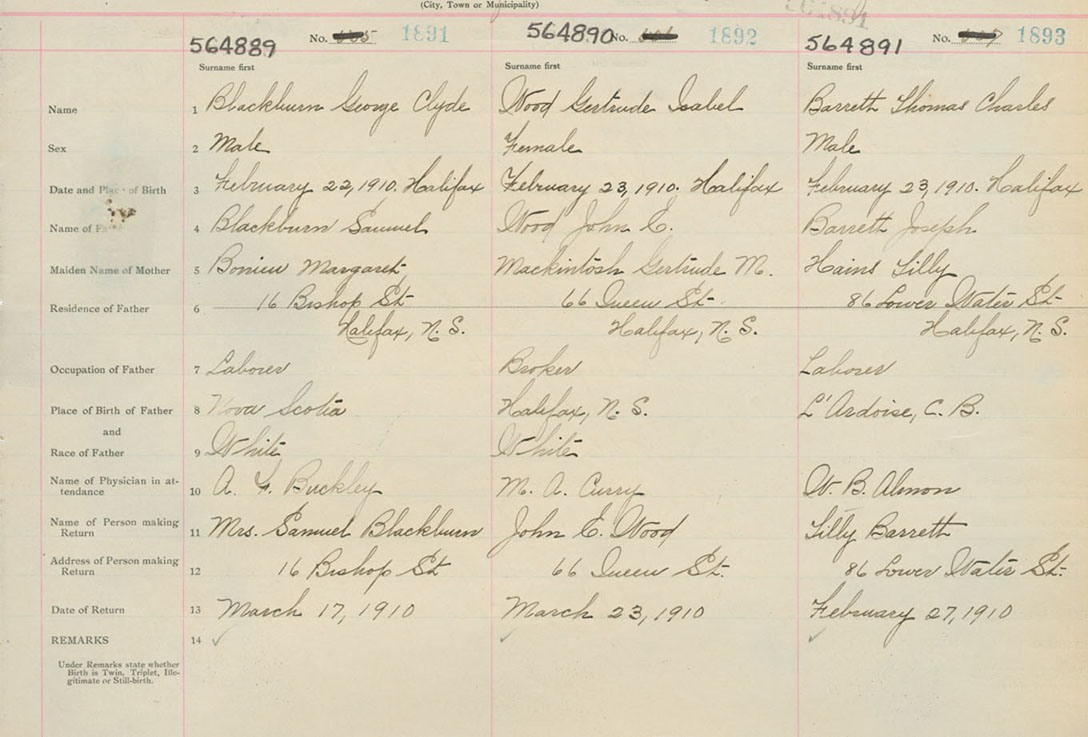 (City, Town or Municipality)
564889 No. 1891 564890 No. 1892 564891 No. 1893
Surname first Surname first Surname first
Name 1 Blackburn George Clyde Wood Gertrude Isabel Barrett Thomas Charles
Sex 2 Male Female Male
Date and Place of Birth 3 February 22, 1910. Halifax February 23, 1910. Halifax February 23, 1910. Halifax
Name of Fa 4 Blackburn Samuel Wood John E. Barrett Joseph
Maiden Name of Mother 5 Margaret Mackintosh Gertrude M. Hains Lilly
Residence of Father 6 16 Bishop St 66 Queen St. 86 Lower Water St
Halifax, N. S. Halifax, N. S. Halifax, N. S.
Occupation of Father 7 Laborer Broker Laborer
Place of Birth of Father 8 Nova Scotia Halifax, N. S. L'Ardoise, C. B.
and
Race of Father 9 White White
Name of Physician in at-
tendance 10 A. Buckley M. A. Curry W. B. Almon
Name of Person making
Return 11 Mrs. Samuel Blackburn John E. Wood Lilly Barrett
Address of Person making
Return 12 16 Bishop St 66 Queen St. 86 Lower Water St.
Date of Return 13 March 17, 1910 March 23, 1910 February 27, 1910
REMARKS 14 ✓ ✓ ✓
Under Remarks state whether
Birth is Twin, Triplet, Ille-
gitimate or Still-birth.